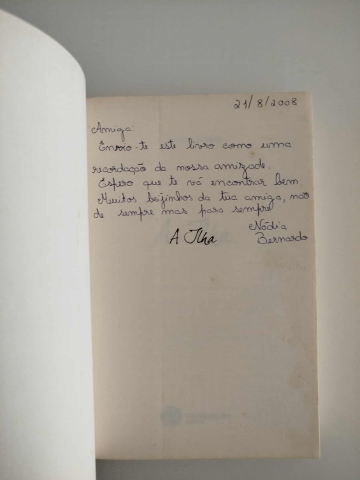 21/8/2008
Amiga
Envio-te este livro como uma
recordação da nossa amizade.
Espero que te vá encontrar bem
Muitos beijinhos da tua amiga, não
de sempre mas para sempre
Nádia
Bernardo
A Ilha